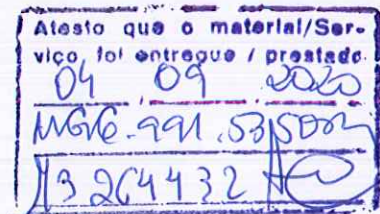 Atesto que o material/Ser-
viço foi entregue / prestado
04 09 2020
13264432